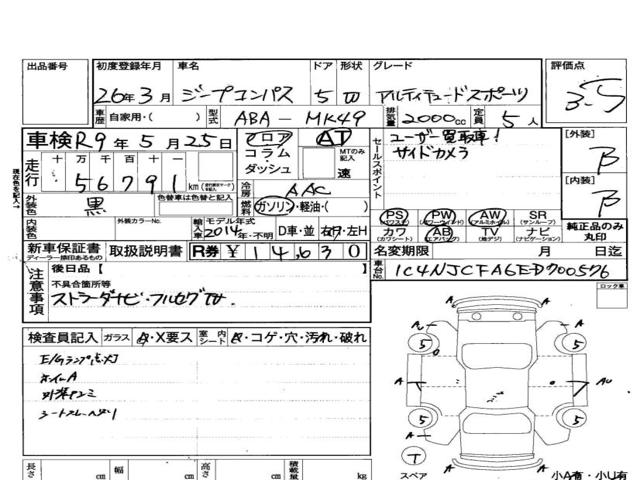 出品番号 初度登録年月 車名 ドア 形状 グレード 評価点
26年3月 ジープコンパス 5 W アルティチュードスポーツ 3.5
車歴 自家用・( ) 型式 ABA-MK49 排気量 2000cc 定員 5人
車検 R9年5月25日 フロア AT セールスポイント ユーザー買取車! [外装]
コラム MTのみ記入 サイドカメラ B
走行 十万千百十一 ダッシュ 速 [内装]
56791 km 冷房 AAC B
外装色 黒 色替車は色替と記入 燃料 ガソリン・軽油・( ) PS PW AW SR 純正品のみ丸印
(パワステ) (パワーウインド) (アルミホイール) (サンルーフ)
内装色 外装カラーNo. 輸入車 モデル年式 2014年・不明 D車・並 右H・左H カワ AB TV ナビ
(カワシート) (エアバック) (地デジ) (ナビゲーション)
新車保証書 取扱説明書 R券 ¥14,630 名変期限 月 日迄
ディーラー捺印あるもの
注意事項 後日品[ ] 車台No. 1C4NJCFA6ED700576
不具合箇所等 ロック車
ストラーダナビ・フルセグTV
検査員記入 ガラス A・X要ス 室内シート K・コゲ・穴・汚れ・破れ
E/Gランプ点灯
ホイールA
現在色を記入→
長さ cm 幅 cm 高さ cm 積載量 kg
A
5 5
A AU
5 5
T
スペア 小A有・小U有